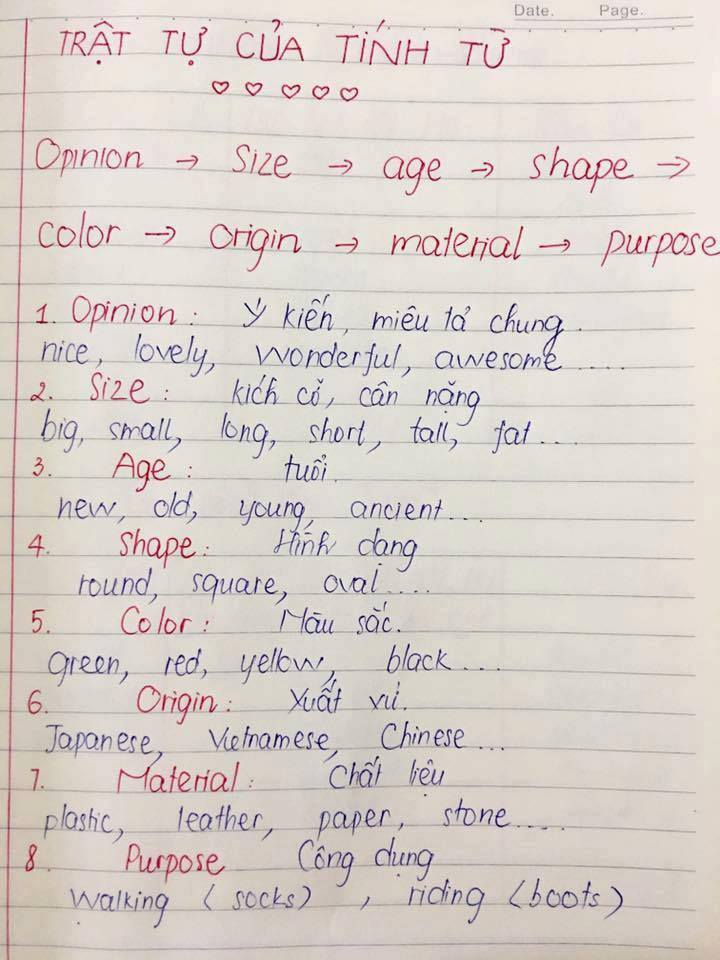 Date. Page.
TRẬT TỰ CỦA TÍNH TỪ
Opinion → Size → age → shape →
color → origin → material → purpose
1. Opinion : Ý kiến, miêu tả chung.
nice, lovely, wonderful, awesome.....
2. Size : kích cỏ, cân nặng
big, small, long, short, tall, fat...
3. Age : tuổi.
new, old, young, ancient...
4. Shape : Hình dạng
round, square, oval....
5. Color : Màu sắc.
green, red, yellow, black...
6. Origin : Xuất xứ.
Japanese, Vietnamese, Chinese...
7. Material : Chất liệu
plastic, leather, paper, stone....
8. Purpose Công dụng
Walking (socks) , riding (boots)